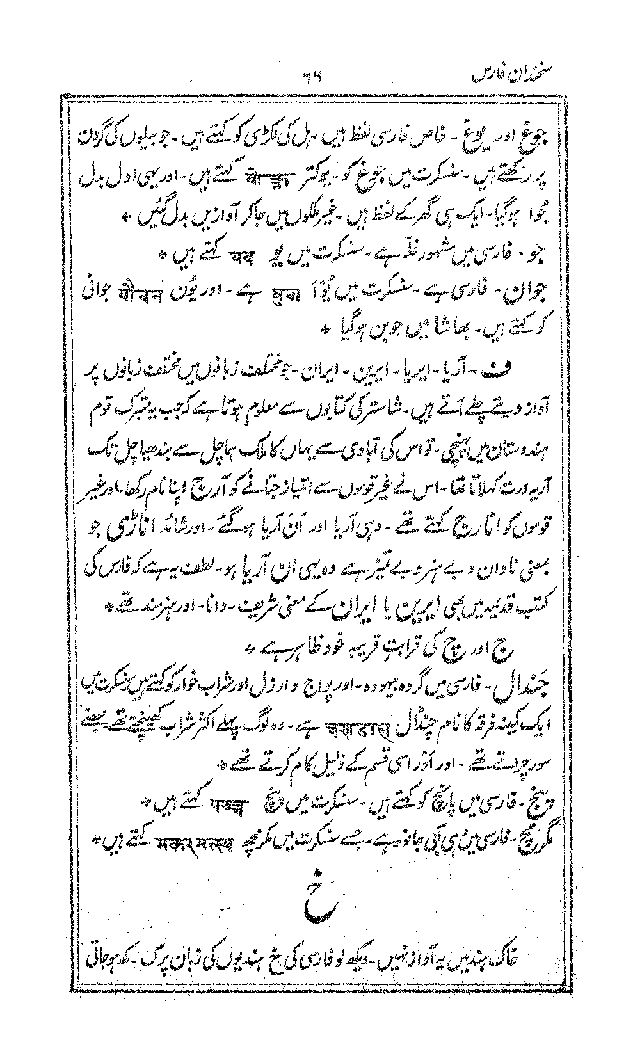 سخندان فارس
۶۸
جوغ اور یوغ - خاص فارسی لفظ ہیں - ہل کی لکڑی کو کہتے ہیں - جو بیلوں کی گردن
پر رکھتے ہیں - سنسکرت میں جوغ کو - یوکتر योक्त्र کہتے ہیں - اور یہی اول بدل
جوا ہوگیا - ایک ہی گھر کے لفظ ہیں - غیر ملکوں میں جا کر آوازیں بدل گئیں *
جو - فارسی میں مشہور غلّہ ہے - سنسکرت میں یو यव کہتے ہیں *
جوان - فارسی ہے - سنسکرت میں یُوَا युवा ہے - اور یون यौवन جوانی
کو کہتے ہیں - بھاشا میں جوبن ہوگیا *
ف - آریا - ایریا - ایرین - ایران - جو مختلف زبانوں میں مختلف زبانوں پر
آواز دیتے چلے آتے ہیں - شاستر کی کتابوں سے معلوم ہوتا ہے کہ جب یہ متبرک قوم
ہندوستان میں پہنچی - تو اس کی آبادی سے یہاں کا ملک ہماچل سے بندھیاچل تک
آریہ ورت کہلاتا تھا - اس نے غیر قوموں سے امتیاز جتانے کو آرج اپنا نام رکھا - اور غیر
قوموں کو انارج کہتے تھے - وہی آریا اور اَن آریا ہو گئے - اور شائد اناڑی جو
بمعنی نادان و بے ہنر و بے تمیز ہے وہ یہی ان آریا ہو - لطف یہ ہے کہ فارس کی
کتب قدیمہ میں بھی ایرین یا ایران کے معنی شریف - دانا - اور ہنرمند تھے *
ج اور چ کی قرابت قریبہ خود ظاہر ہے *
چندال - فارسی میں گروہ بیہودہ - اور پواج و ارذل اور شراب خوار کو کہتے ہیں سنسکرت میں
ایک کمینہ فرقہ کا نام چنڈال चण्डाल ہے - وہ لوگ پہلے اکثر شراب کھینچتے تھے بیچتے تھے
سور چراتے تھے - اور اَور اسی قسم کے ذلیل کام کرتے تھے *
پنج - فارسی میں پانچ کو کہتے ہیں - سنسکرت میں پنچ पञ्च کہتے ہیں *
مگرمچ - فارسی میں ہی آبی جانور ہے - جسے سنسکرت میں مکر مچھ मकरमत्स्य کہتے ہیں *
خ
خاک ہند میں یہ آواز نہیں - دیکھ لو فارسی کی خ ہندیوں کی زبان پر ک - کھ ہو جاتی